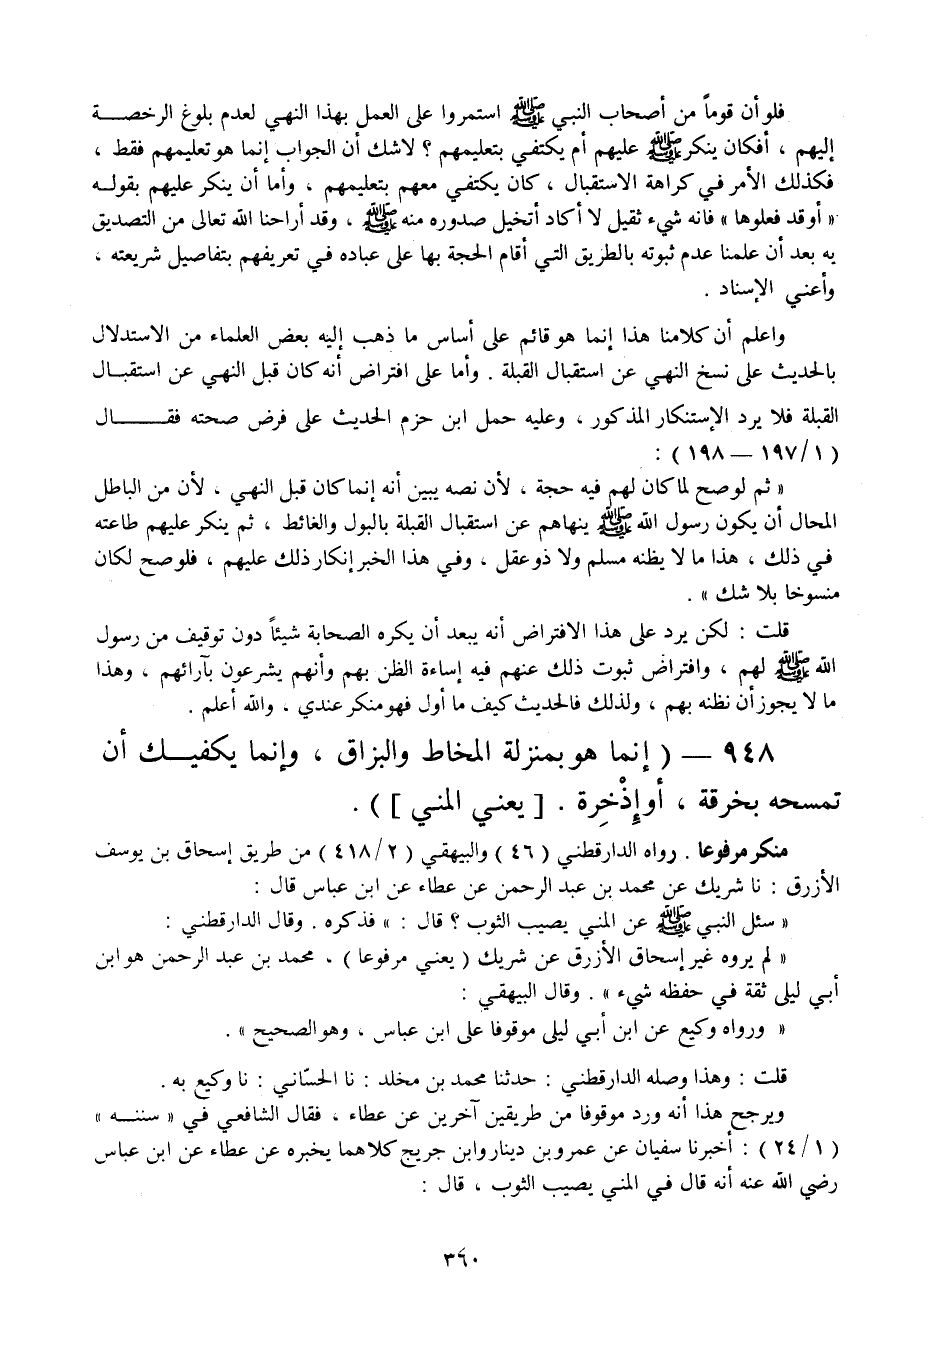 فلو أن قوماً من أصحاب النبي ﷺ استمروا على العمل بهذا النهي لعدم بلوغ الرخصة
إليهم ، أفكان ينكر ﷺ عليهم أم يكتفي بتعليمهم ؟ لاشك أن الجواب إنما هو تعليمهم فقط ،
فكذلك الأمر في كراهة الاستقبال ، كان يكتفي معهم بتعليمهم ، وأما أن ينكر عليهم بقوله
« أوقد فعلوها » فانه شيء ثقيل لا أكاد أتخيل صدوره منه ﷺ ، وقد أراحنا الله تعالى من التصديق
به بعد أن علمنا عدم ثبوته بالطريق التي أقام الحجة بها على عباده في تعريفهم بتفاصيل شريعته ،
وأعني الإسناد .
واعلم أن كلامنا هذا إنما هو قائم على أساس ما ذهب إليه بعض العلماء من الاستدلال
بالحديث على نسخ النهي عن استقبال القبلة . وأما على افتراض أنه كان قبل النهي عن استقبال
القبلة فلا يرد الإستنكار المذكور ، وعليه حمل ابن حزم الحديث على فرض صحته فقال
( ١٩٧/١ — ١٩٨ ) :
« ثم لو صح لما كان لهم فيه حجة ، لأن نصه يبين أنه إنما كان قبل النهي ، لأن من الباطل
المحال أن يكون رسول الله ﷺ ينهاهم عن استقبال القبلة بالبول والغائط ، ثم ينكر عليهم طاعته
في ذلك ، هذا ما لا يظنه مسلم ولا ذو عقل ، وفي هذا الخبر إنكار ذلك عليهم ، فلو صح لكان
منسوخا بلا شك » .
قلت : لكن يرد على هذا الافتراض أنه يبعد أن يكره الصحابة شيئاً دون توقيف من رسول
الله ﷺ لهم ، وافتراض ثبوت ذلك عنهم فيه إساءة الظن بهم وأنهم يشرعون بآرائهم ، وهذا
ما لا يجوز أن نظنه بهم ، ولذلك فالحديث كيف ما أول فهو منكر عندي ، والله أعلم .
٩٤٨ — ( إنما هو بمنزلة المخاط والبزاق ، وإنما يكفيك أن
تمسحه بخرقة ، أو إِذْخِرة . [ يعني المني ] ) .
منكر مرفوعا . رواه الدارقطني ( ٤٦ ) والبيهقي ( ٤١٨/٢ ) من طريق إسحاق بن يوسف
الأزرق : نا شريك عن محمد بن عبد الرحمن عن عطاء عن ابن عباس قال :
« سئل النبي ﷺ عن المني يصيب الثوب ؟ قال : » فذكره . وقال الدارقطني :
« لم يروه غير إسحاق الأزرق عن شريك ( يعني مرفوعا ) ، محمد بن عبد الرحمن هو ابن
أبي ليلى ثقة في حفظه شيء » . وقال البيهقي :
« ورواه وكيع عن ابن أبي ليلى موقوفا على ابن عباس ، وهو الصحيح » .
قلت : وهذا وصله الدارقطني : حدثنا محمد بن مخلد : نا الحسّاني : نا وكيع به .
ويرجح هذا أنه ورد موقوفا من طريقين آخرين عن عطاء ، فقال الشافعي في « سننه »
( ٢٤/١ ) : أخبرنا سفيان عن عمرو بن دينار وابن جريج كلاهما يخبره عن عطاء عن ابن عباس
رضي الله عنه أنه قال في المني يصيب الثوب ، قال :
٣٦٠